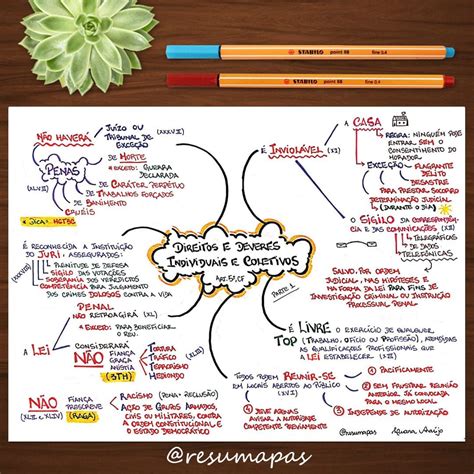 STABILO point 88 fine 0.4
STABILO point 88 fine 0.4
NÃO HAVERÁ
JUÍZO OU
TRIBUNAL DE
EXCEÇÃO
(XXXVII)
PENAS
(XLVII)
DE MORTE
* EXCETO: GUERRA
DECLARADA
DE CARÁTER PERPÉTUO
DE TRABALHOS FORÇADOS
DE BANIMENTO
CRUÉIS
É INVIOLÁVEL (XI)
A CASA
REGRA: NINGUÉM PODE
ENTRAR SEM O
CONSENTIMENTO DO
MORADOR
EXCEÇÃO
FLAGRANTE
DELITO
DESASTRE
PARA PRESTAR SOCORRO
DETERMINAÇÃO JUDICIAL
(DURANTE O DIA)
O SIGILO DA CORRESPONDÊNCIA
E DAS COMUNICAÇÕES (XII)
TELEGRÁFICAS
DE DADOS
TELEFÔNICAS
SALVO, POR ORDEM
JUDICIAL, NAS HIPÓTESES E
FORMA DA LEI PARA FINS DE
INVESTIGAÇÃO CRIMINAL OU INSTRUÇÃO
PROCESSUAL PENAL
DIREITOS E DEVERES
INDIVIDUAIS E COLETIVOS
ART. 5º, CF
PARTE 1
É RECONHECIDA A INSTITUIÇÃO
DO JÚRI, ASSEGURADOS:
PLENITUDE DE DEFESA
SIGILO DAS VOTAÇÕES
SOBERANIA DOS VEREDICTOS
COMPETÊNCIA PARA JULGAMENTO
DOS CRIMES DOLOSOS CONTRA A VIDA
A LEI
PENAL
NÃO RETROAGIRÁ (XL)
* EXCETO: PARA BENEFICIAR
O RÉU.
CONSIDERARÁ
NÃO
FIANÇA
GRAÇA
ANISTIA
(3TH)
TORTURA
TRÁFICO
TERRORISMO
HEDIONDO
(XLIII)
NÃO
FIANÇA
PRESCREVE
(XLII E XLIV)
(RAGA)
RACISMO (PENA: RECLUSÃO)
AÇÃO DE GRUPOS ARMADOS,
CIVIS OU MILITARES, CONTRA
A ORDEM CONSTITUCIONAL E
O ESTADO DEMOCRÁTICO
É LIVRE O EXERCÍCIO DE QUALQUER
TOP (TRABALHO, OFÍCIO OU PROFISSÃO), ATENDIDAS
AS QUALIFICAÇÕES PROFISSIONAIS QUE
A LEI ESTABELECER (XIII)
TODOS PODEM REUNIR-SE
EM LOCAIS ABERTOS AO PÚBLICO
(XVI)
① PACIFICAMENTE
② SEM FRUSTRAR REUNIÃO
ANTERIOR JÁ CONVOCADA
PARA O MESMO LOCAL
③ INDEPENDE DE AUTORIZAÇÃO
④ DEVE APENAS
AVISAR A AUTORIDADE
COMPETENTE PREVIAMENTE
@resumapas
@resumapas